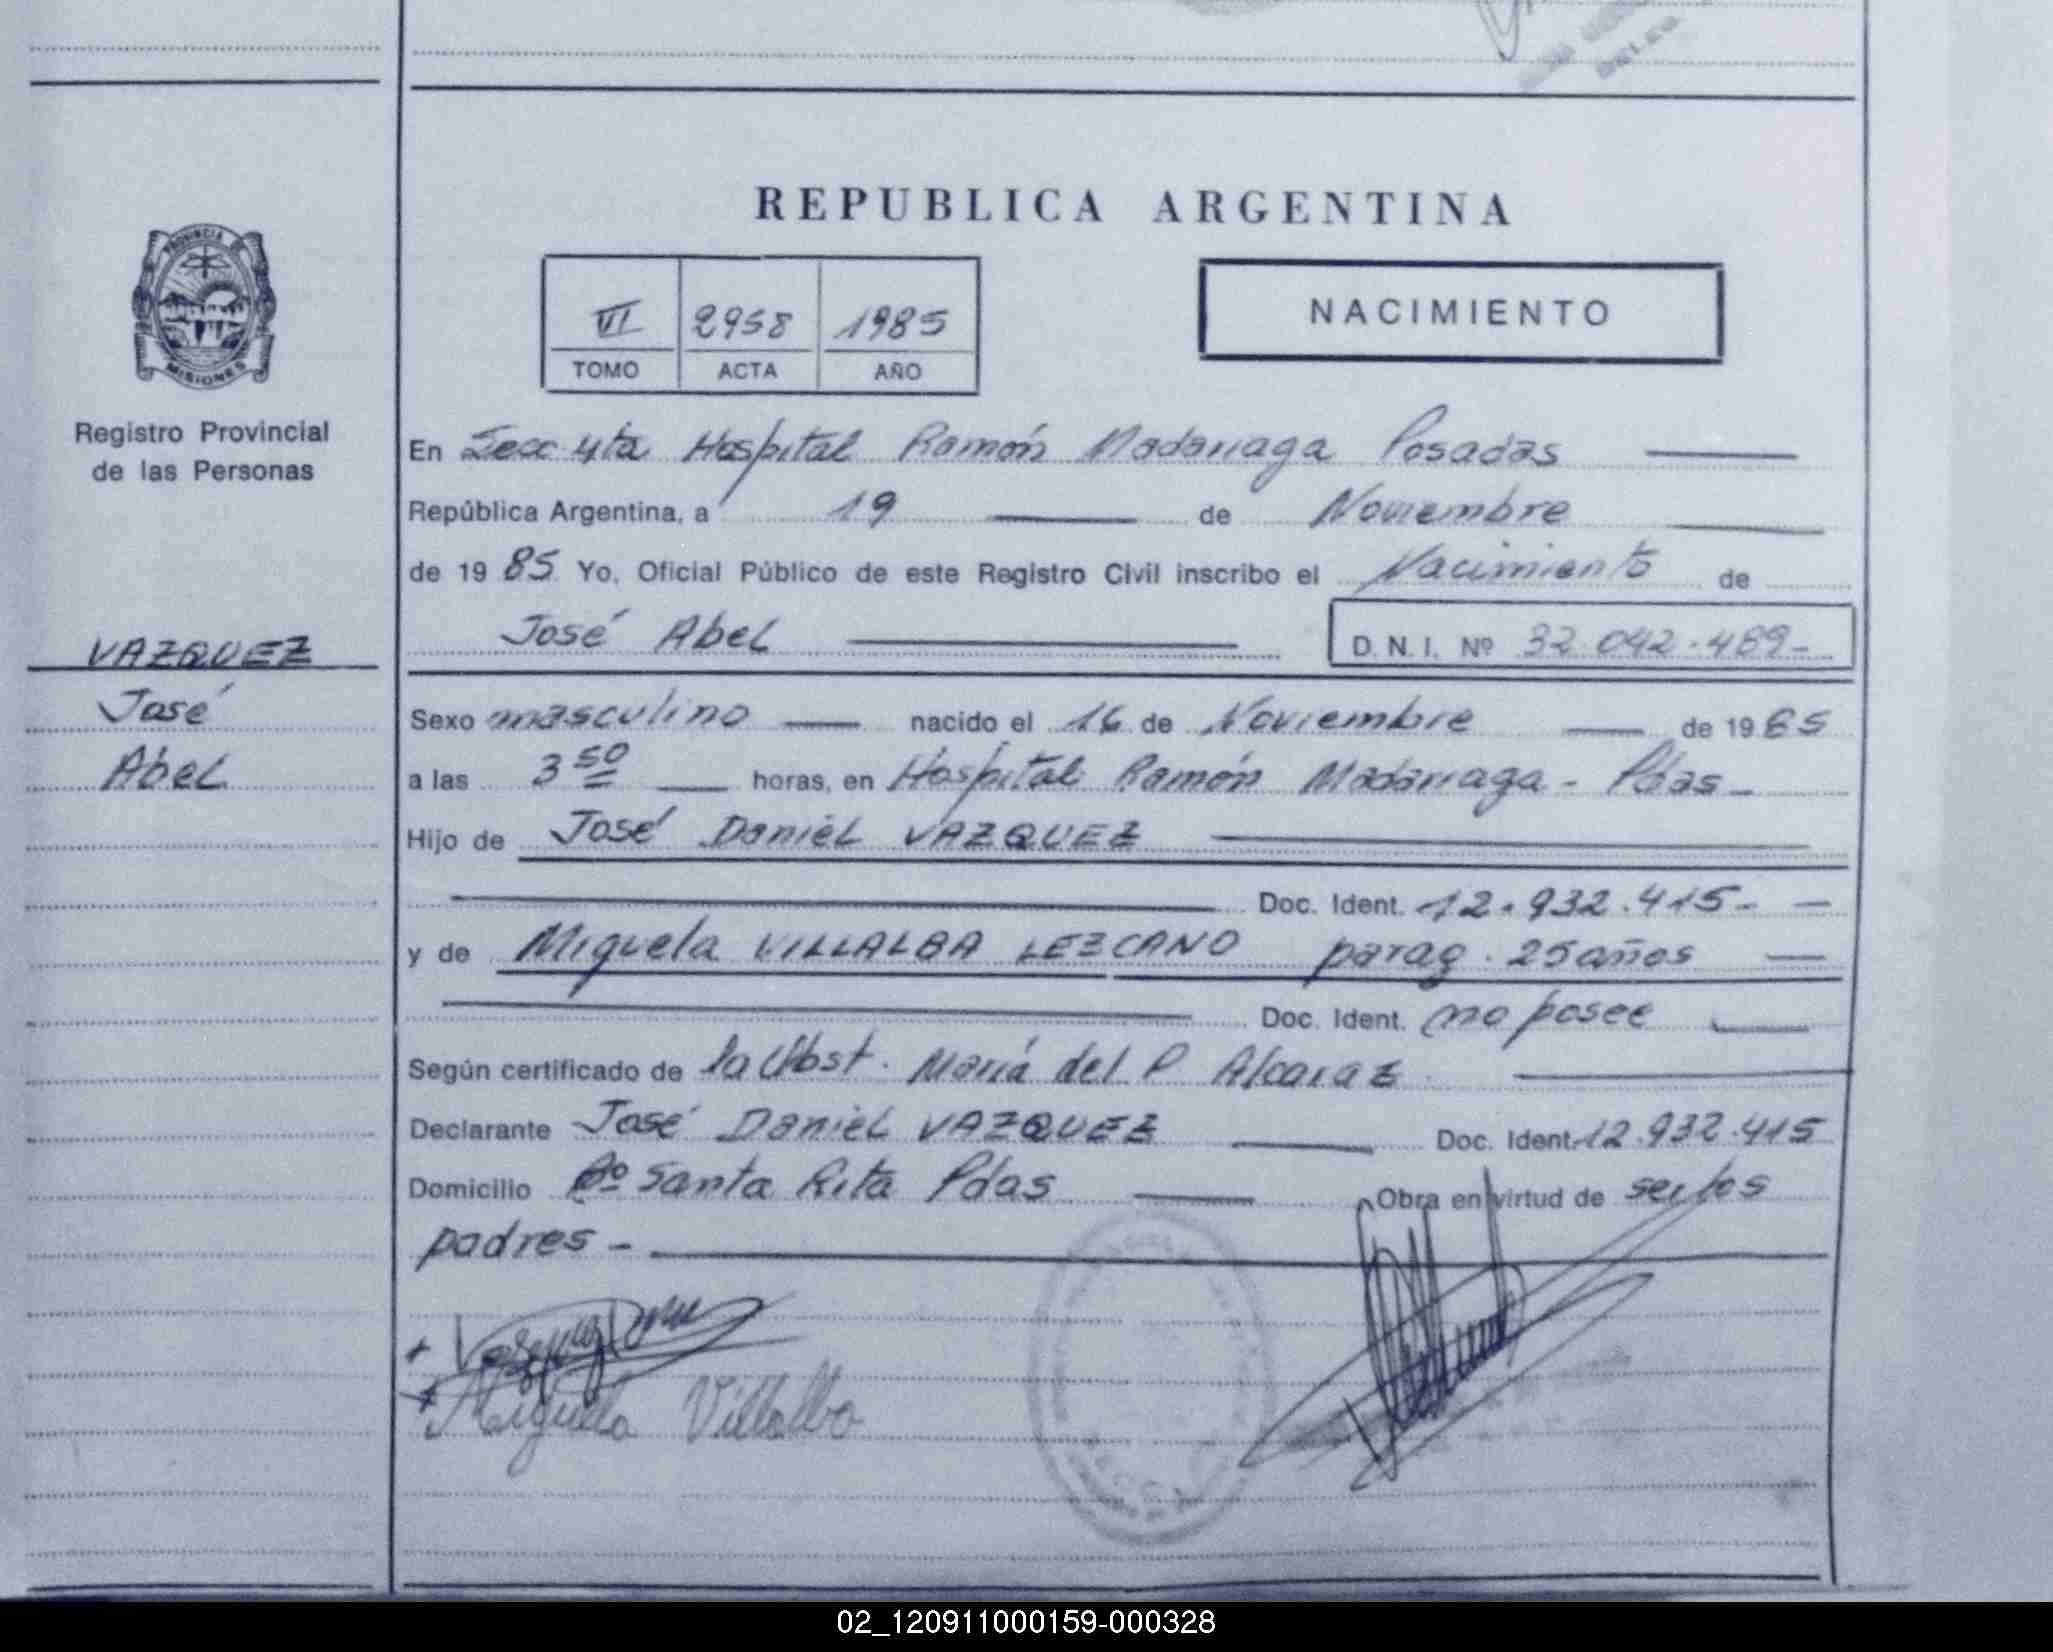 REPUBLICA ARGENTINA
PROVINCIA DE
MISIONES
Registro Provincial
de las Personas
VAZQUEZ
José
Abel
VI 2958 1985
TOMO ACTA AÑO
NACIMIENTO
En Secc 4ta Hospital Ramón Madariaga Posadas
República Argentina, a 19 de Noviembre
de 19 85 Yo, Oficial Público de este Registro Civil inscribo el Nacimiento de
José Abel D. N. I. Nº 32.042.489-
Sexo masculino nacido el 16 de Noviembre de 19 85
a las 3 50 horas, en Hospital Ramón Madariaga - Pdas-
Hijo de José Daniel VAZQUEZ
Doc. Ident. 12.932.415-
y de Miguela VILLALBA LEZCANO parag. 25 años
Doc. Ident. no posee
Según certificado de la Obst. María del P Alcaraz
Declarante José Daniel VAZQUEZ Doc. Ident. 12.932.415
Domicilio Bº Santa Rita Pdas Obra en virtud de ser los
padres -
Miguela Villalba
02_120911000159-000328